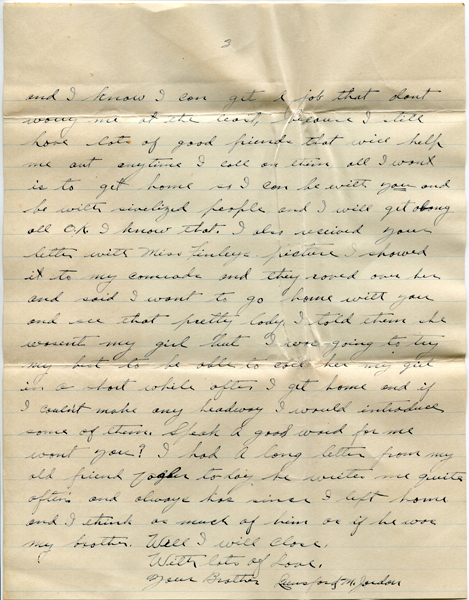 3
and I know I can get a job that dont
worry me at the least, because I still
have lots of good friends that will help
me out anytime I call on them all I want
is to get home so I can be with you and
be with sivelized people and I will get along
all OK I know that. I also received your
letter with Miss Finleys picture I showed
it to my comrads and they raved over her
and said I want to go home with you
and see that pretty lady I told them she
wasent my girl but I was going to try
my best to be able to call her my girl
in a short while after I get home and if
I couldn't make any headway I would introduce
some of them. Speak a good word for me
wont you? I had a long letter from my
old friend today he writes me quite
often and always has since I left home
and I think as much of him as if he was
my brother. Well I will close.
With lots of Love.
Your Brother Lunsford H. Jordon